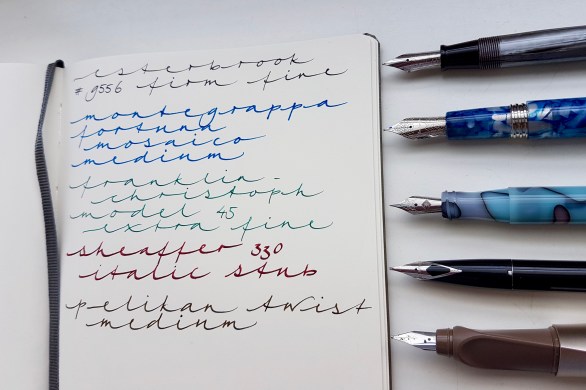 esterbrook
# 9556 firm fine
montegrappa
fortuna
mosaico
medium
franklin-
christoph
model 45
extra fine
sheaffer 330
italic stub
pelikan twist
medium